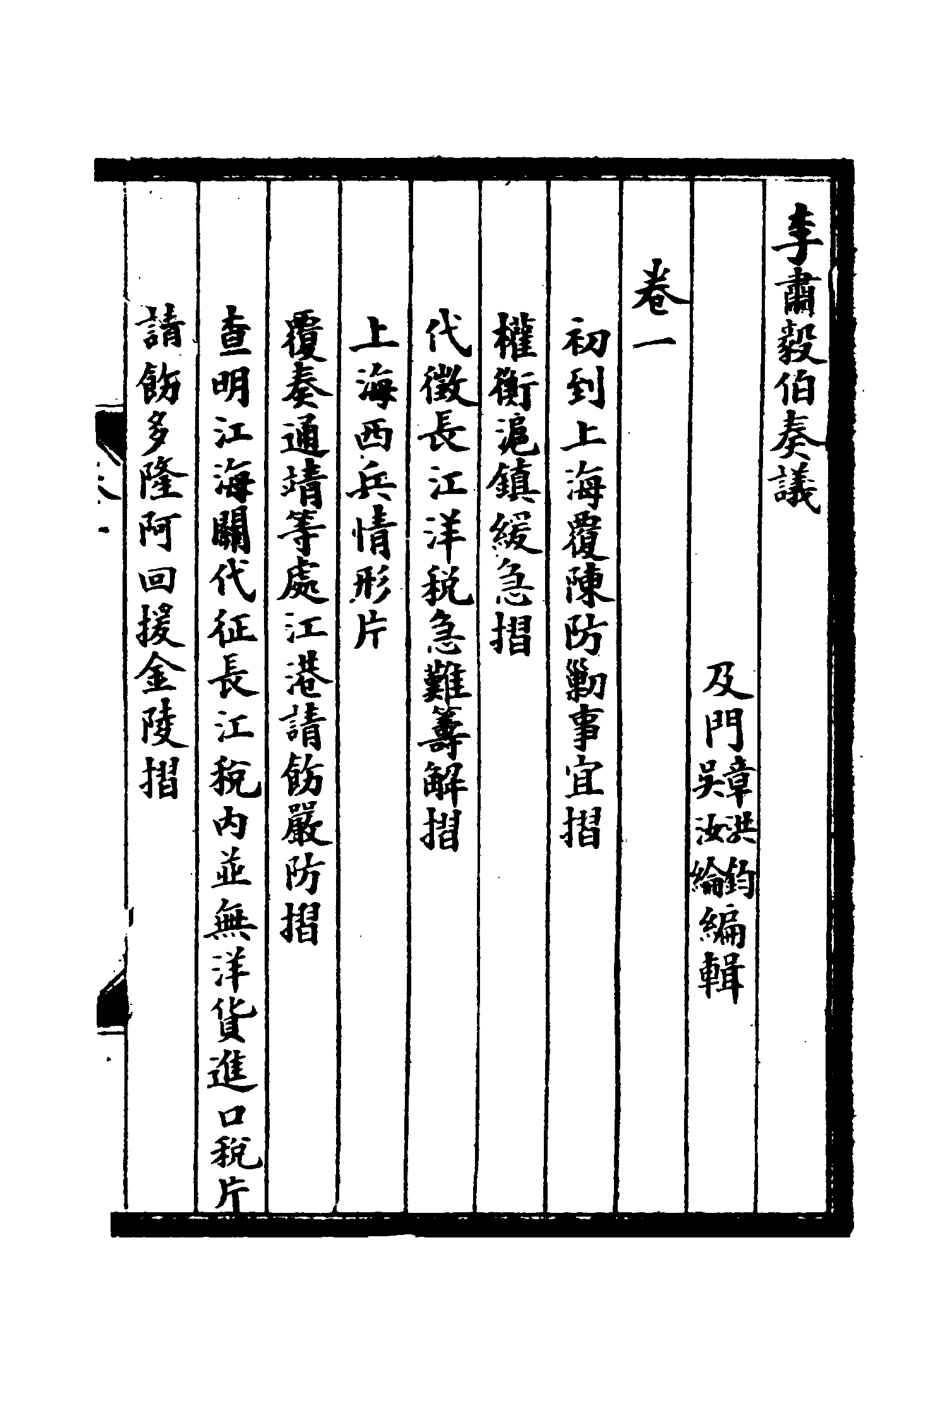 李肅毅伯奏議
及門章洪鈞吳汝綸編輯
卷一
初到上海覆陳防勦事宜摺
權衡滬鎮緩急摺
代徵長江洋税急難籌解摺
上海西兵情形片
覆奏通靖等處江港請飭嚴防摺
查明江海關代征長江稅内並無洋貨進口稅片
請飭多隆阿回援金陵摺